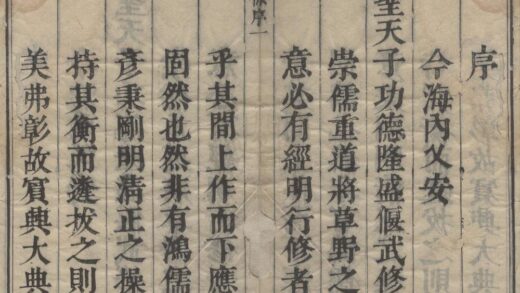 序
今海內乂安
聖天子功德隆盛偃武修
崇儒重道將草野之
意必有經明行修者
序一
乎其間上作而下應
固然也然非有鴻儒
彥秉剛明清正之操
持其衡而遴拔之則
美弗彰故賔興大典